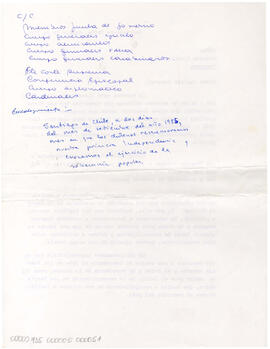 c/c
Miembros Junta de Gobierno
Cuerpo Generales Ejército
Cuerpo Almirantes
Cuerpo Generales Fach
Cuerpo Generales Carabineros
Pte Corte Suprema
Conferencia Episcopal
Cuerpo Diplomático
Cardenales
Encabezamiento :-
Santiago de Chile, a dos días
del mes de setiembre del año 1985,
mes en que los chilenos
nuestra primera Independencia y
el ejercicio de la
soberanía popular.